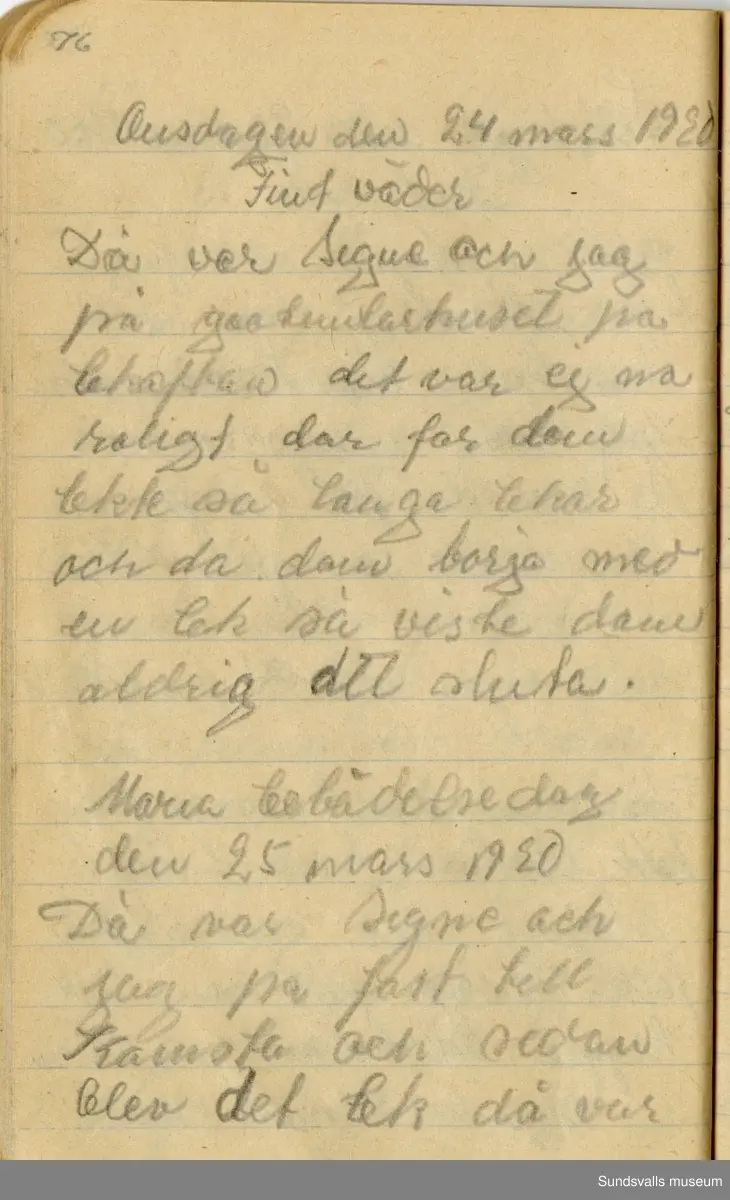 76
Onsdagen den 24 mars 1920
Fint väder
Då var Signe och jag
på godtemlarhuset på
lekaftan det var ej na
roligt dar for dom
lekte så langa lekar
och da dom borja med
en lek så viste dom
aldrig dll sluta.
Maria bebådelsedag
den 25 mars 1920
Då var Signe och
jag pa fast till
Kamsta och sedan
blev det lek då var
Sundsvalls museum